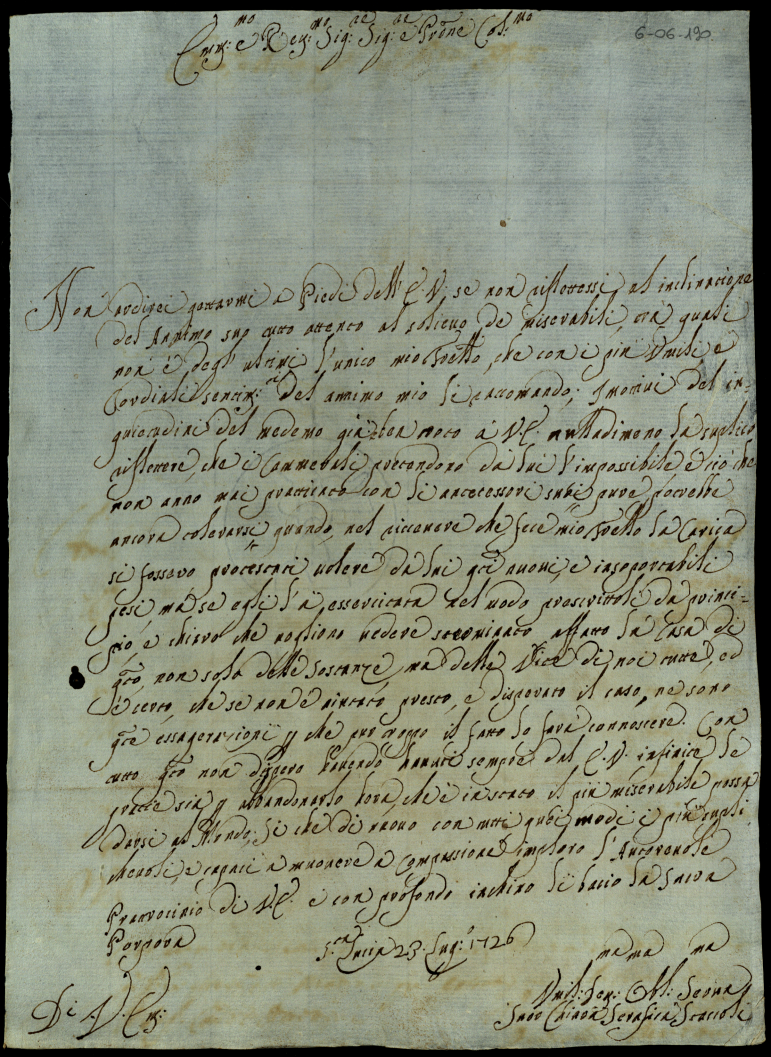 6-06-190.
Em: e Rev:mo Sig:re Sig:re e Prone Col:mo
Non ardirei gettarmi a Piedi dell' E. V. se non riflettessi al inclinazione
del Animo suo tutto attento al solievo de miserabili, trà quali
non è degl' ultimi l'unico mio Fratello, che con i più Umili, e
Cordiali sentim:ti del animo mio li raccomando; I motivi del in-
quietudini del medemo già son noto a V.E. nulladimeno la suplico
riflettere, che i Camerali pretendono da lui l'impossibile e ciò che
non anno mai pratticato con li antecessori suoi pure potrebbe
ancora tolerarsi quando nel ricevere che fece mio Fratello la Carica
si fossero protestati volere da lui q.ti nuovi, e insoportabili
pesi, ma se egli l'à essercitata nel modo proscrittoli da princi-
pio, è chiaro che vogliono vedere sterminato affatto la Casa di
q.to, non solo delle sostanze, ma delle Vite di noi tutte, ed
è certo, che se non è aiutato presto, è disperato il caso, ne sono
q.te essagerazioni p che pur troppo il fatto lo farà connoscere. Con
tutto q.to non dispero havendo havuti sempre dal E.V. infinite le
grazie sia p abbandonarlo hora, che è in stato il più miserabile possa
darsi al Mondo; Si che di nuovo con tutti quei modi i più supli-
chevoli, e capaci a muovere a Compassione imploro l'Autorevole
Pratrocinio di V.E. e con profondo inchino li bacio la Sacra
Porpora
S.ta Lucia 23. Lug:o 1726
Di V. Em:
Umil:ma Dev:ma Obl:ma Serva
Suor Chiara Serafica Staccoli